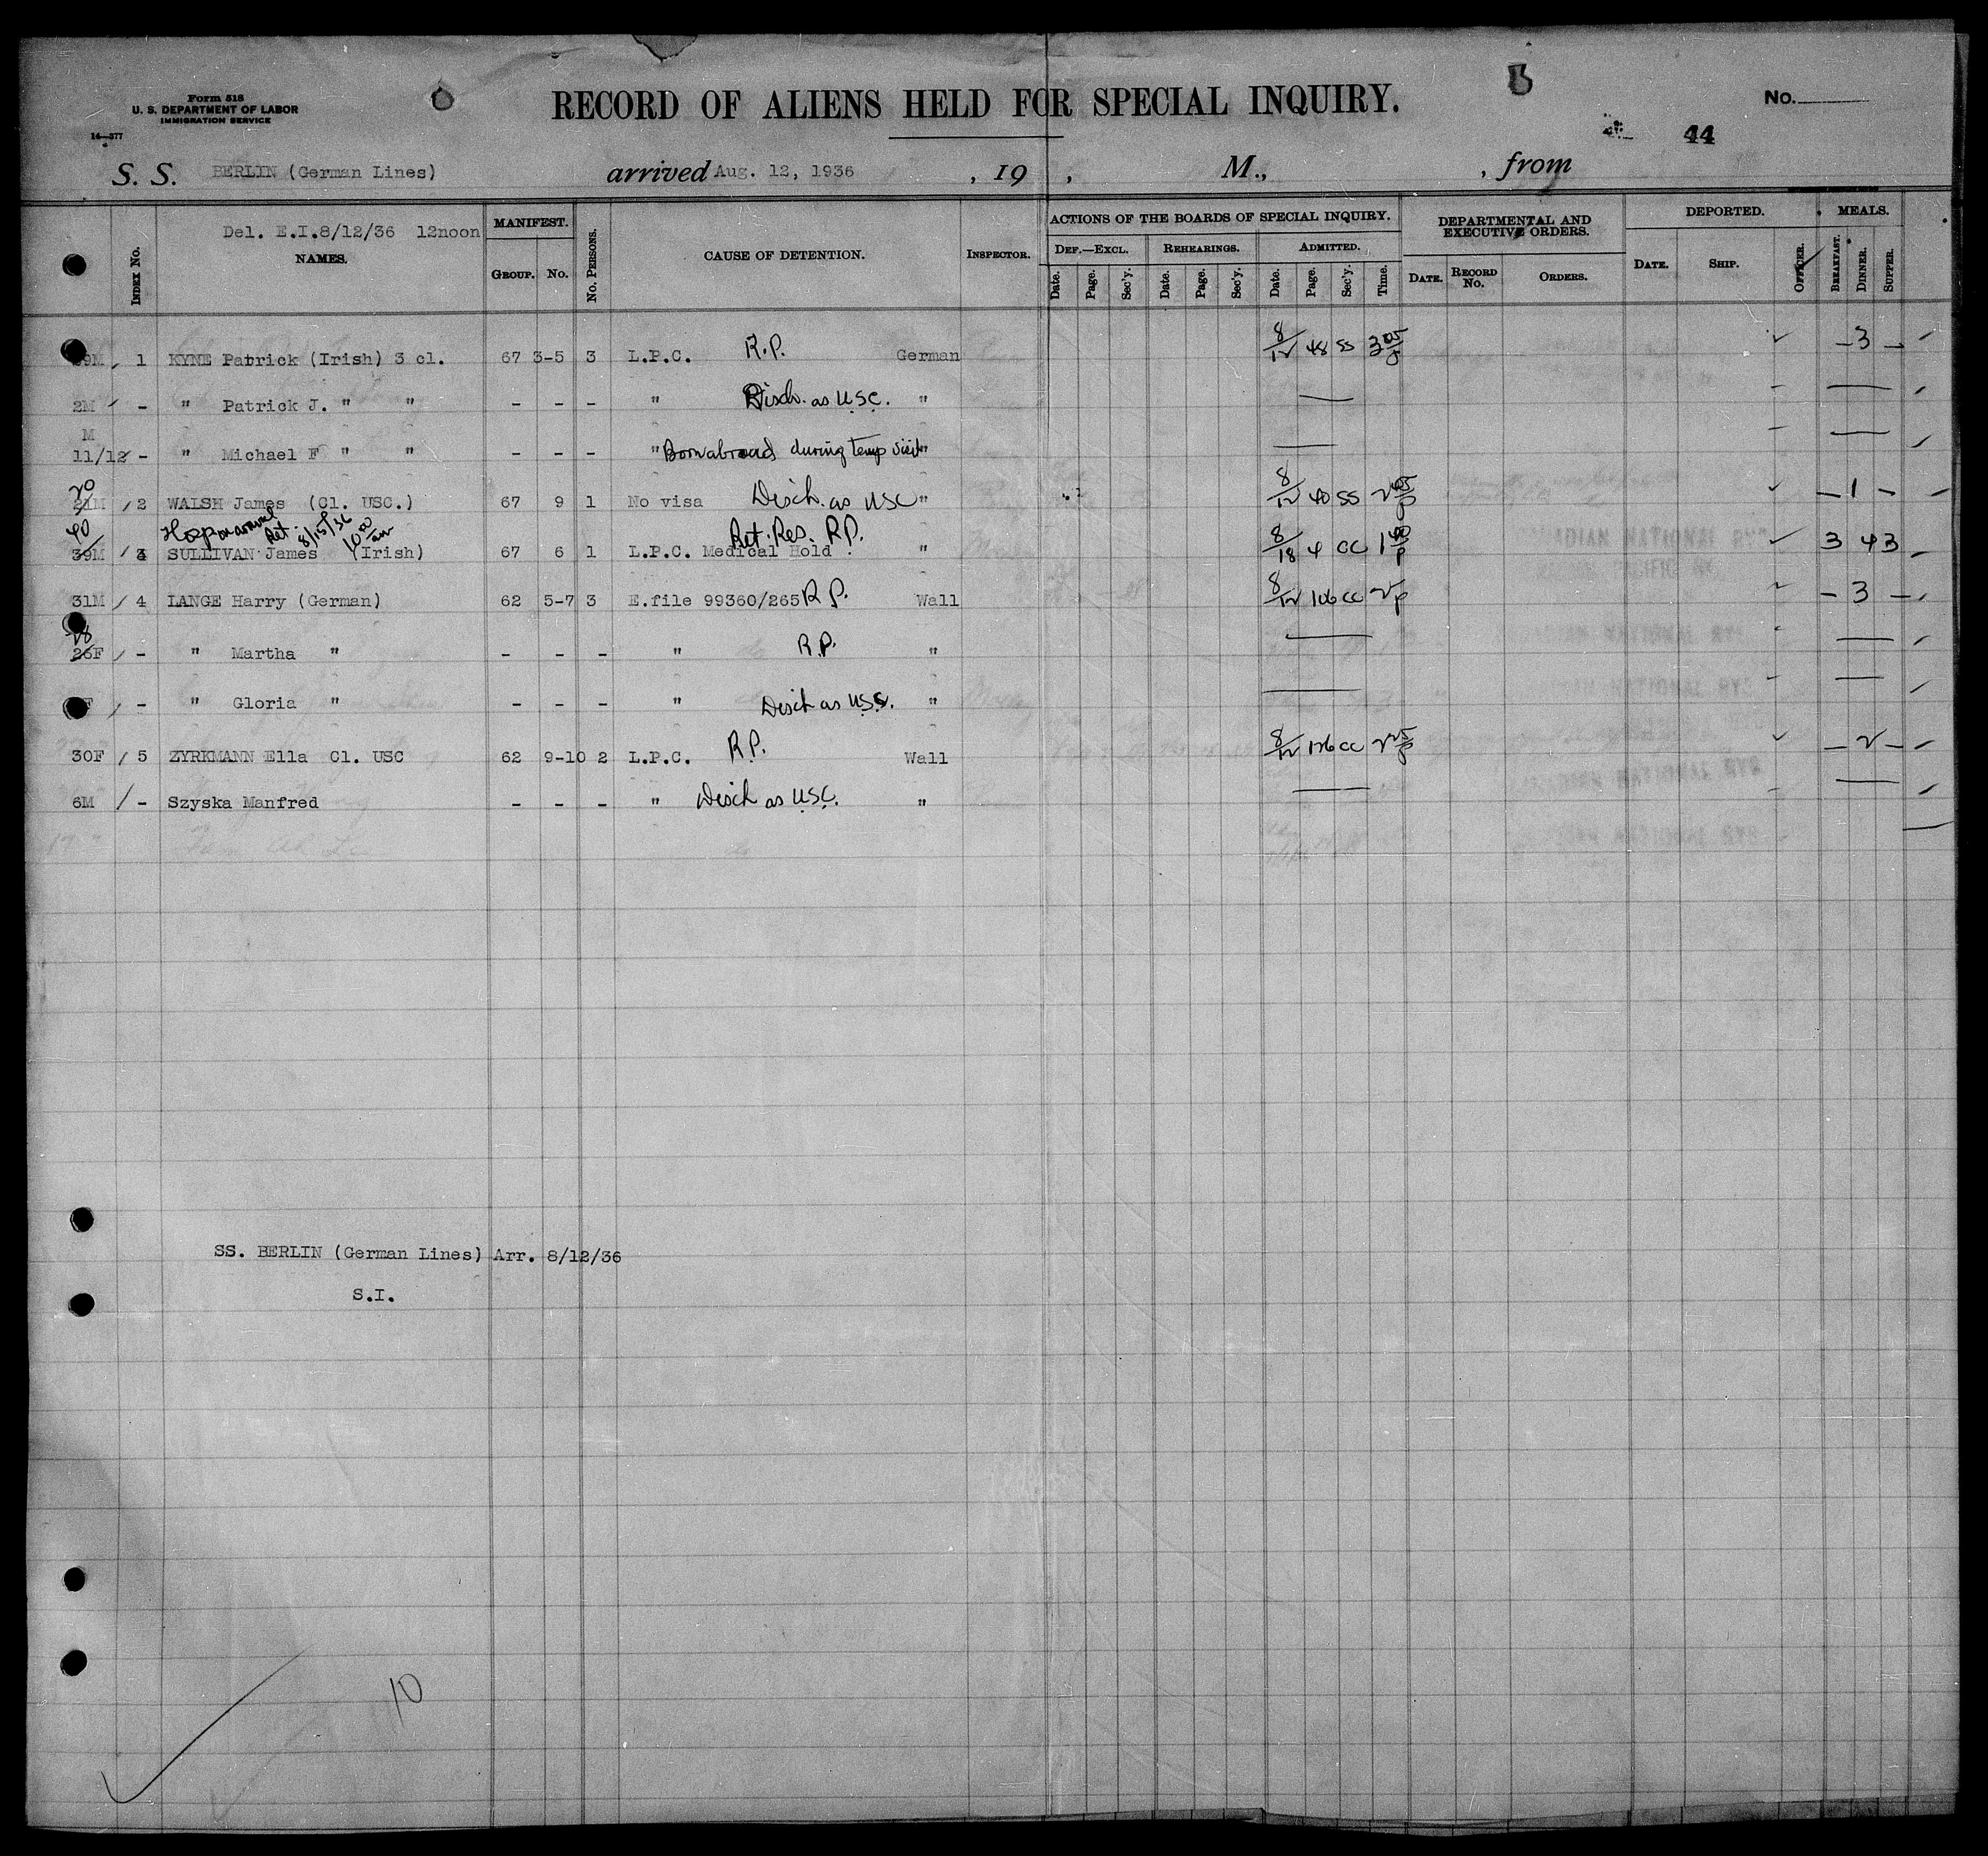 Form 518
U. S. DEPARTMENT OF LABOR
IMMIGRATION SERVICE
16—377
RECORD OF ALIENS HELD FOR SPECIAL INQUIRY.
No.
44
S. S. BERLIN (German Lines) arrived Aug. 12, 1936 , 19 , M., , from
INDEX No. Del. E.I. 8/12/36 12noon NAMES. MANIFEST. GROUP. No. No. PERSONS. CAUSE OF DETENTION. INSPECTOR. ACTIONS OF THE BOARDS OF SPECIAL INQUIRY. DEF.—EXCL. Date. Page. Sec'y. REHEARINGS. Date. Page. Sec'y. ADMITTED. Date. Page. Sec'y. Time. DEPARTMENTAL AND EXECUTIVE ORDERS. DATE. RECORD No. ORDERS. DEPORTED. DATE. SHIP. OFFICER. MEALS. BREAKFAST. DINNER. SUPPER.
1 KYNE Patrick (Irish) 3 cl. 67 3-5 3 L.P.C. R.P. German 8/12 48 SS 3 – 3 –
2M - " Patrick J. " " - - - " Disch. as U.S.C. "
M
11/12 - " Michael F " " - - - " Born abroad during temp visit "
20
21M / 2 WALSH James (Cl. USC.) 67 9 1 No visa Disch. as USC " 8/12 40 SS – 1 –
40 Hosp on arrival Ret. 8/15/36 10 00 am Ret. Res. R.P.
39M / 3 SULLIVAN James (Irish) 67 6 1 L.P.C. Medical Hold " 8/18 4 CC 3 4 3
31M / 4 LANGE Harry (German) 62 5-7 3 E.file 99360/265 R.P. Wall 8/12 106 CC 2 p – 3 –
28
26F / - " Martha " - - - " R.P. "
F / - " Gloria " - - - " Disch as U.S.C. "
30F / 5 ZYRKMANN Ella Cl. USC 62 9-10 2 L.P.C. R.P. Wall 8/12 126 CC – 2 –
6M / - Szyska Manfred - - - " Disch as U.S.C. "
SS. BERLIN (German Lines) Arr. 8/12/36
S.I.
10